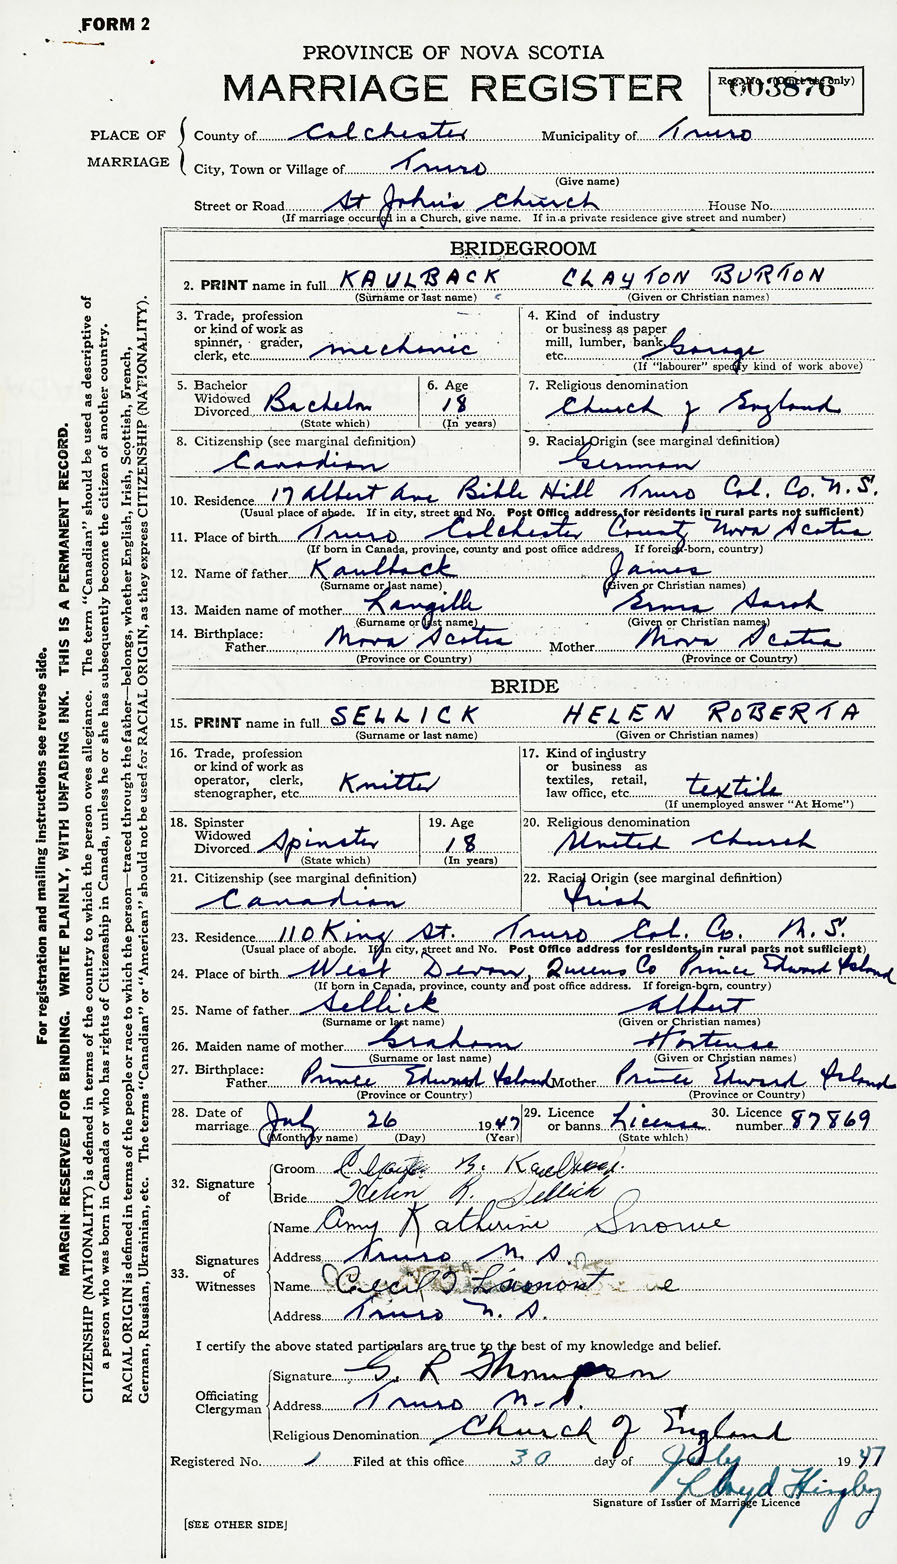 FORM 2
PROVINCE OF NOVA SCOTIA
MARRIAGE REGISTER
Reg. No. (Office use only)
003876
PLACE OF MARRIAGE
County of Colchester Municipality of Truro
City, Town or Village of Truro
(Give name)
Street or Road St John's Church House No.
(If marriage occurred in a Church, give name. If in a private residence give street and number)
BRIDEGROOM
2. PRINT name in full KAULBACK CLAYTON BURTON
(Surname or last name) (Given or Christian names)
3. Trade, profession or kind of work as spinner, grader, clerk, etc. mechanic
4. Kind of industry or business as paper mill, lumber, bank, etc. Garage
(If "labourer" specify kind of work above)
5. Bachelor Widowed Divorced Bachelor
(State which)
6. Age 18
(In years)
7. Religious denomination
Church of England
8. Citizenship (see marginal definition)
Canadian
9. Racial Origin (see marginal definition)
German
10. Residence 17 Albert Ave Bible Hill Truro Col. Co. N.S.
(Usual place of abode. If in city, street and No. Post Office address for residents in rural parts not sufficient)
11. Place of birth Truro Colchester County Nova Scotia
(If born in Canada, province, county and post office address. If foreign-born, country)
12. Name of father Kaulback James
(Surname or last name) (Given or Christian names)
13. Maiden name of mother Langille Erma Sarah
(Surname or last name) (Given or Christian names)
14. Birthplace: Father Nova Scotia Mother Nova Scotia
(Province or Country) (Province or Country)
BRIDE
15. PRINT name in full SELLICK HELEN ROBERTA
(Surname or last name) (Given or Christian names)
16. Trade, profession or kind of work as operator, clerk, stenographer, etc. Knitter
17. Kind of industry or business as textiles, retail, law office, etc. textile
(If unemployed answer "At Home")
18. Spinster Widowed Divorced Spinster
(State which)
19. Age 18
(In years)
20. Religious denomination
United Church
21. Citizenship (see marginal definition)
Canadian
22. Racial Origin (see marginal definition)
Irish
23. Residence 110 King St. Truro Col. Co. N.S.
(Usual place of abode. If in city, street and No. Post Office address for residents in rural parts not sufficient)
24. Place of birth West Devon, Queens Co Prince Edward Island
(If born in Canada, province, county and post office address. If foreign-born, country)
25. Name of father Sellick Albert
(Surname or last name) (Given or Christian names)
26. Maiden name of mother Graham Hortense
(Surname or last name) (Given or Christian names)
27. Birthplace: Father Prince Edward Island Mother Prince Edward Island
(Province or Country) (Province or Country)
28. Date of marriage July 26 1947
(Month by name) (Day) (Year)
29. Licence or banns License
(State which)
30. Licence number 87869
32. Signature of
Groom B. Kaulback
Bride Helen R. Sellick
33. Signatures of Witnesses
Name Amy Katherine Snowe
Address Truro N.S.
Name Cecil Lamont
Address Truro N.S.
I certify the above stated particulars are true to the best of my knowledge and belief.
Officiating Clergyman
Signature G. R Thompson
Address Truro N.S.
Religious Denomination Church of England
Registered No. 1 Filed at this office 30 day of July 1947
Lloyd
Signature of Issuer of Marriage Licence
[SEE OTHER SIDE]
For registration and mailing instructions see reverse side.
MARGIN RESERVED FOR BINDING. WRITE PLAINLY, WITH UNFADING INK. THIS IS A PERMANENT RECORD.
CITIZENSHIP (NATIONALITY) is defined in terms of the country to which the person owes allegiance. The term "Canadian" should be used as descriptive of
a person who was born in Canada or who has rights of Citizenship in Canada, unless he or she has subsequently become the citizen of another country.
RACIAL ORIGIN is defined in terms of the people or race to which the person—traced through the father—belongs, whether English, Irish, Scottish, French,
German, Russian, Ukrainian, etc. The terms "Canadian" or "American" should not be used for RACIAL ORIGIN, as they express CITIZENSHIP (NATIONALITY).